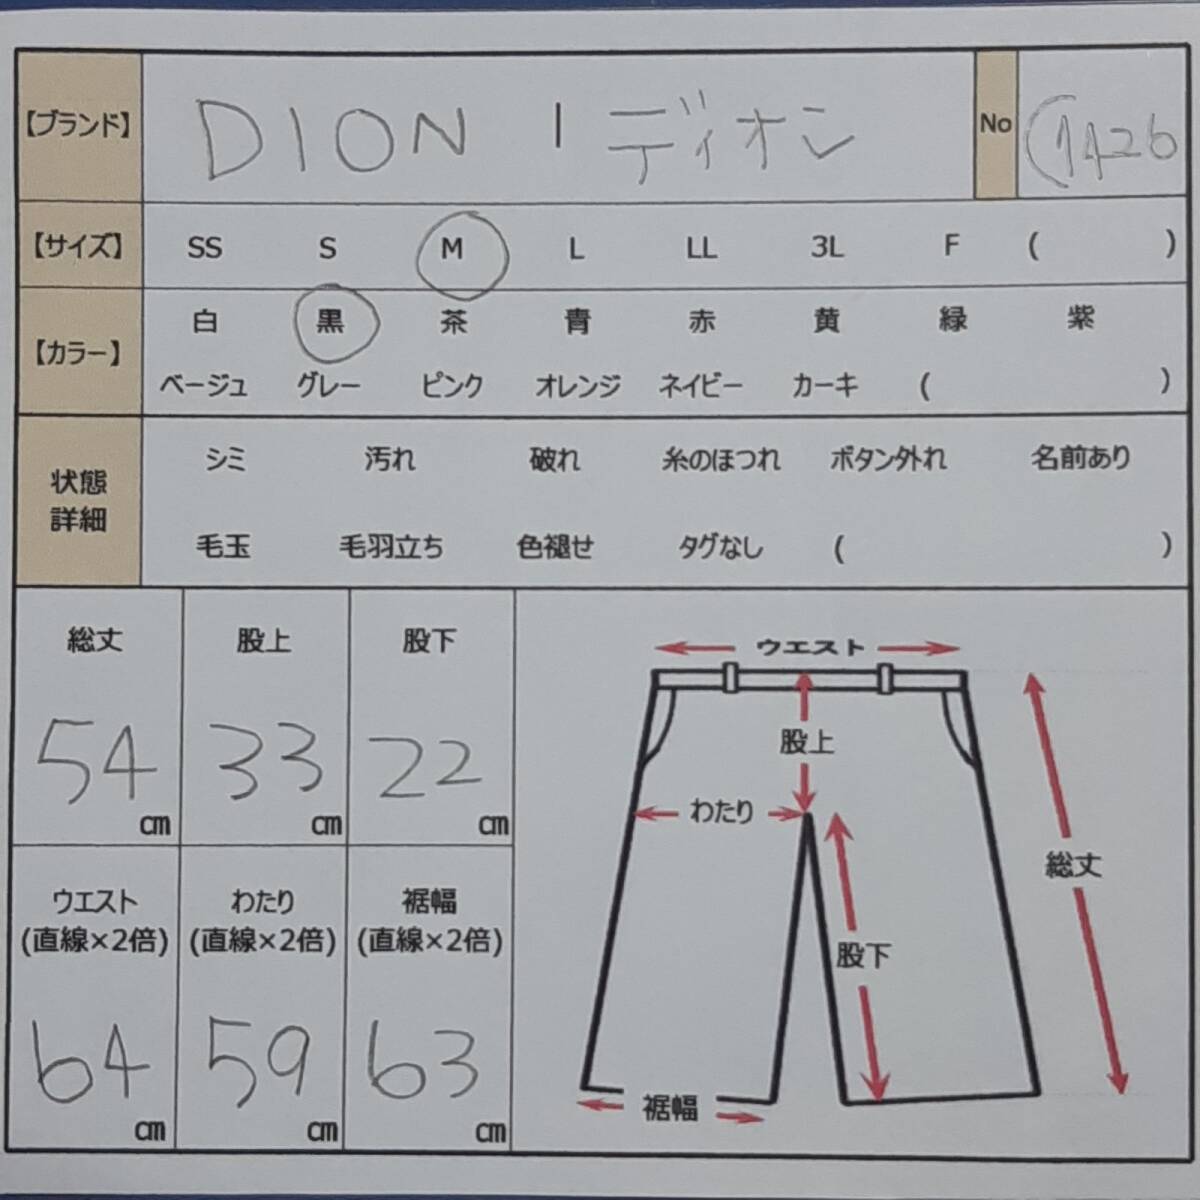 【ブランド】 DION | ディオン No (7426
【サイズ】 SS S M L LL 3L F ( )
【カラー】 白 黒 茶 青 赤 黄 緑 紫
ベージュ グレー ピンク オレンジ ネイビー カーキ ( )
状態
詳細
シミ 汚れ 破れ 糸のほつれ ボタン外れ 名前あり
毛玉 毛羽立ち 色褪せ タグなし ( )
総丈 股上 股下
54 cm 33 cm 22 cm
ウエスト わたり 裾幅
(直線×2倍) (直線×2倍) (直線×2倍)
64 cm 59 cm 63 cm
ウエスト
股上
わたり
総丈
股下
裾幅